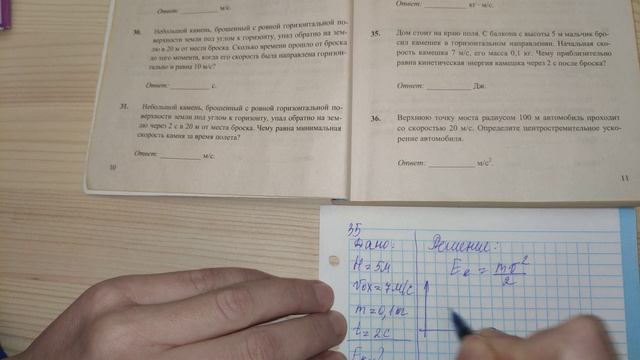 Ответ: м/с.
30. Небольшой камень, брошенный с ровной горизонтальной по-
верхности земли под углом к горизонту, упал обратно на зем-
лю в 20 м от места броска. Сколько времени прошло от броска
до того момента, когда его скорость была направлена горизон-
тально и равна 10 м/с?
Ответ: с.
31. Небольшой камень, брошенный с ровной горизонтальной по-
верхности земли под углом к горизонту, упал обратно на зем-
лю через 2 с в 20 м от места броска. Чему равна минимальная
скорость камня за время полета?
Ответ: м/с.
10
Ответ: кг · м/с.
35. Дом стоит на краю поля. С балкона с высоты 5 м мальчик бро-
сил камешек в горизонтальном направлении. Начальная ско-
рость камешка 7 м/с, его масса 0,1 кг. Чему приблизительно
равна кинетическая энергия камешка через 2 с после броска?
Ответ: Дж.
36. Верхнюю точку моста радиусом 100 м автомобиль проходит
со скоростью 20 м/с. Определите центростремительное уско-
рение автомобиля.
Ответ: м/с².
11
35
Дано:
H = 5м
v₀ₓ = 7м/с
m = 0,1кг
t = 2с
Eк - ?
Решение:
Eк = mv²/2